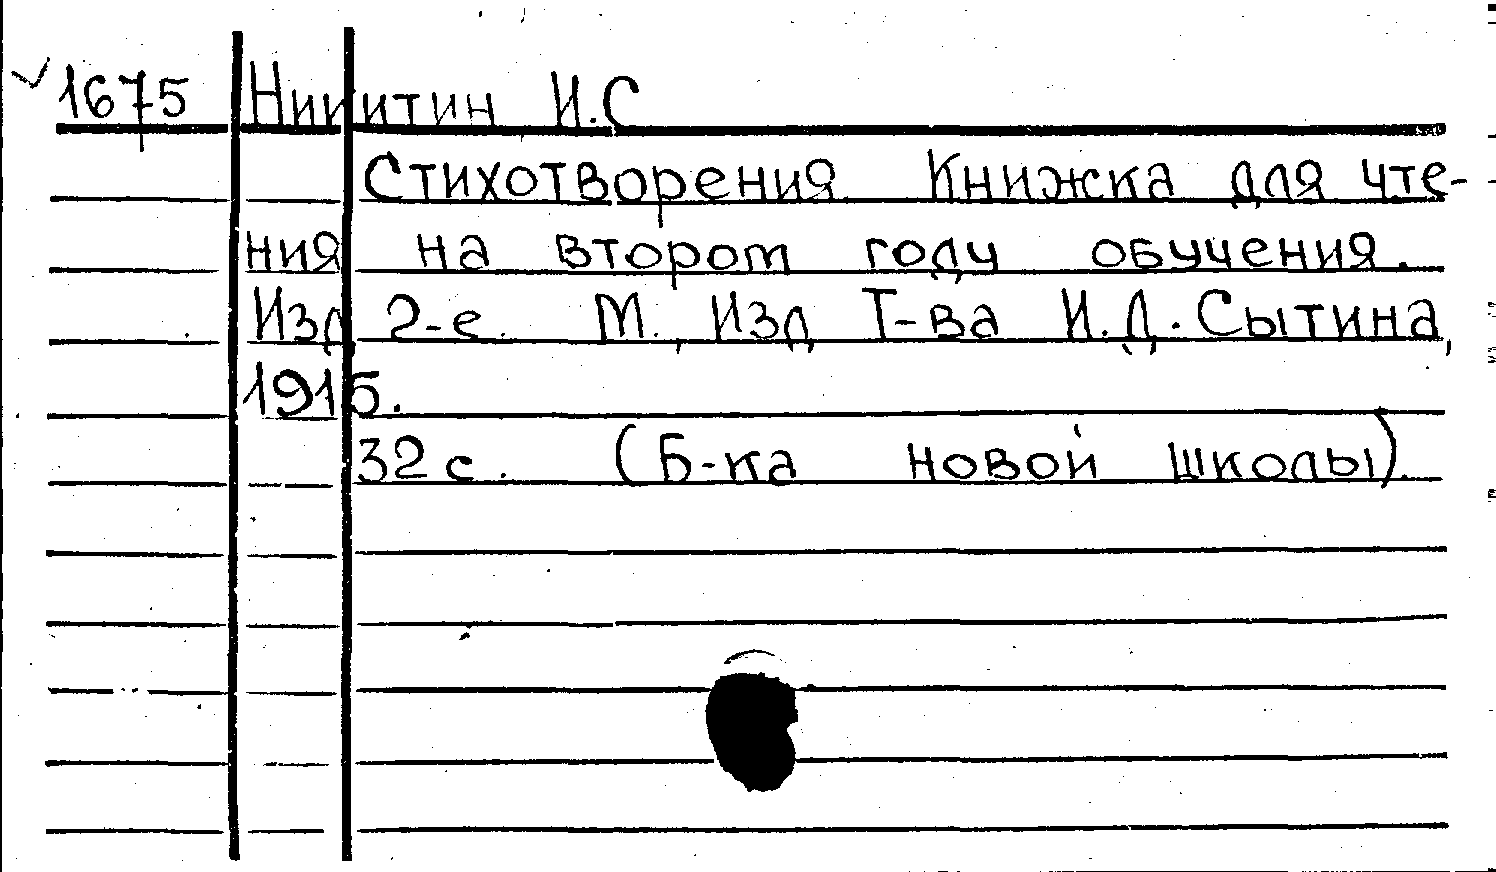 1675 Никитин И.С
Стихотворения. Книжка для чте-
ния на втором году обучения.
Изд 2-е. М., Изд Т-ва И.Д. Сытина,
1915.
32 с. (Б-ка новой школы).